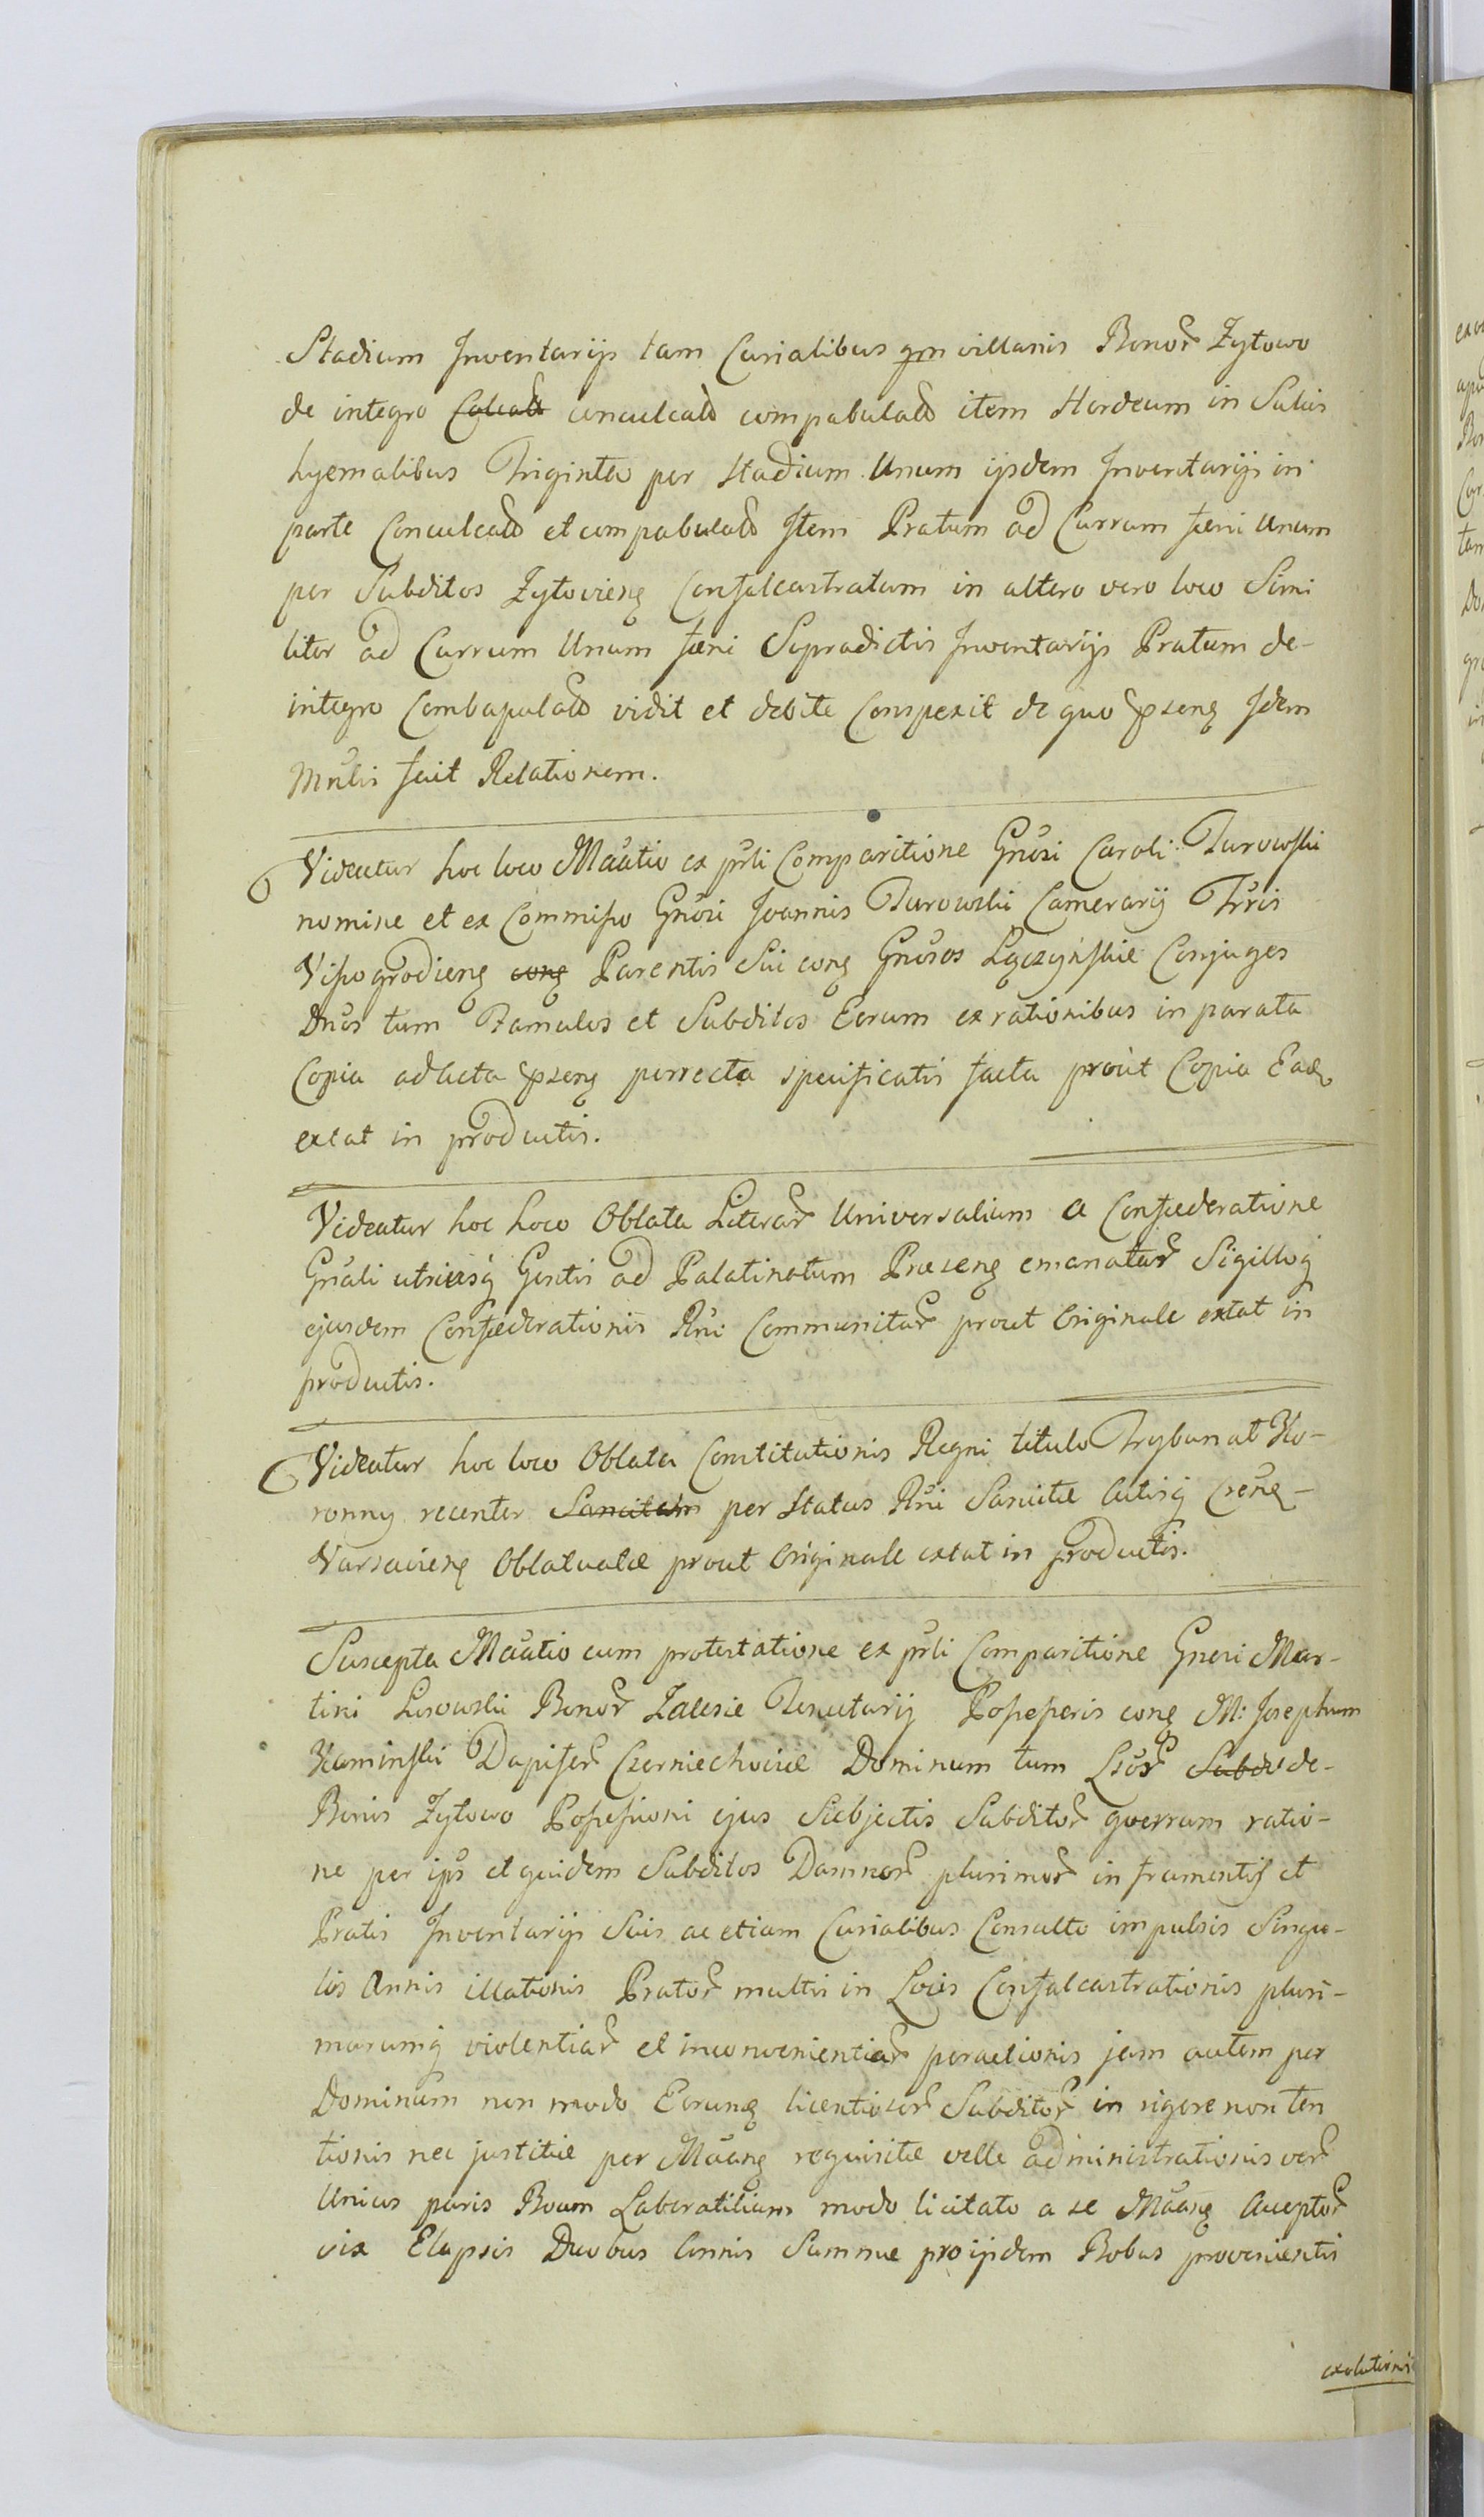 Stadium Inventarijs tam Curialibus qm villanis Bonor Zytowo
de integro Calcat conculcato compabulato item Hordeum in Satis
hyemalibus Triginta per Stadium Unum ijsdem Inventarijs in
parte Conculcato et compabulato Item Pratum ad Currum fæni Unum
per Subditos Zytovieng Confalcastratum in altero vero loco Simi
liter ad Currum Unum fæni Supradictis Inventarijs Pratum de-
integro Combapulato vidit et debite Conspexit de quo præseng Idem
Mnlis fecit Relationem.
Videatur hoc loco Maatio ex prli Comparitione Gnosi Caroli Turowski
nomine et ex Commisso Gnosi Joannis Turowski Camerarij Trris
Vissogrodieng cong Parentis Sui cong Gnosos Łączyńskie Conjuges
Dnos tum Famulos et Subditos Eorum ex rationibus in parata
Copia ad Acta præseng porrecta specificatis facta prout Copia Ead
extat in productis.
Videatur hoc Loco Oblata Literar Universalium a Confæderatione
Gnali utriusq Gentis ad Palatinatum Præseng emanatar Sigilloq
ejusdem Confæderationis Rni Communitar prout Originale extat in
productis.
Videatur hoc loco Oblata Constitutionis Regni titulo Trybunat Ko-
ronny recenter Sancitam per Status Rni Sancitæ Actisq Creng-
Varsavieng Oblatuatæ prout Originale extat in productis.
Suscepta Maatio cum protestatione ex prli Comparitione Gnesi Mar-
tini Lisowski Bonor Zalesie Tenutarij Possessoris cong M: Josephum
Kaminski Dapifer Czerniechoviæ Dominum tum Lsor Subd de-
Bonis Zytowo Possessioni ejus Subjectis Subditor quorum ratio-
ne per ips et quidem Subditos Damnor plurimor in frumentis et
Pratis Inventarijs Suis ac etiam Curialibus Consulto impulsis Singu-
lis Annis illationis Prator multis in Locis Confalcastrationis pluri-
marumq violentiar et inconvenientiar peractionis jam autem per
Dominum non modo Eorung licentiosor Subditor in rigore non ten
tionis nec justitiæ per Maang requisitæ velle administrationis ver
Unius paris Boum Laboratilium modo licitato a se Maang Acceptor
vix Elapsis Duobus Annis Summæ pro ijsdem Bobus provenientis
exolutionis